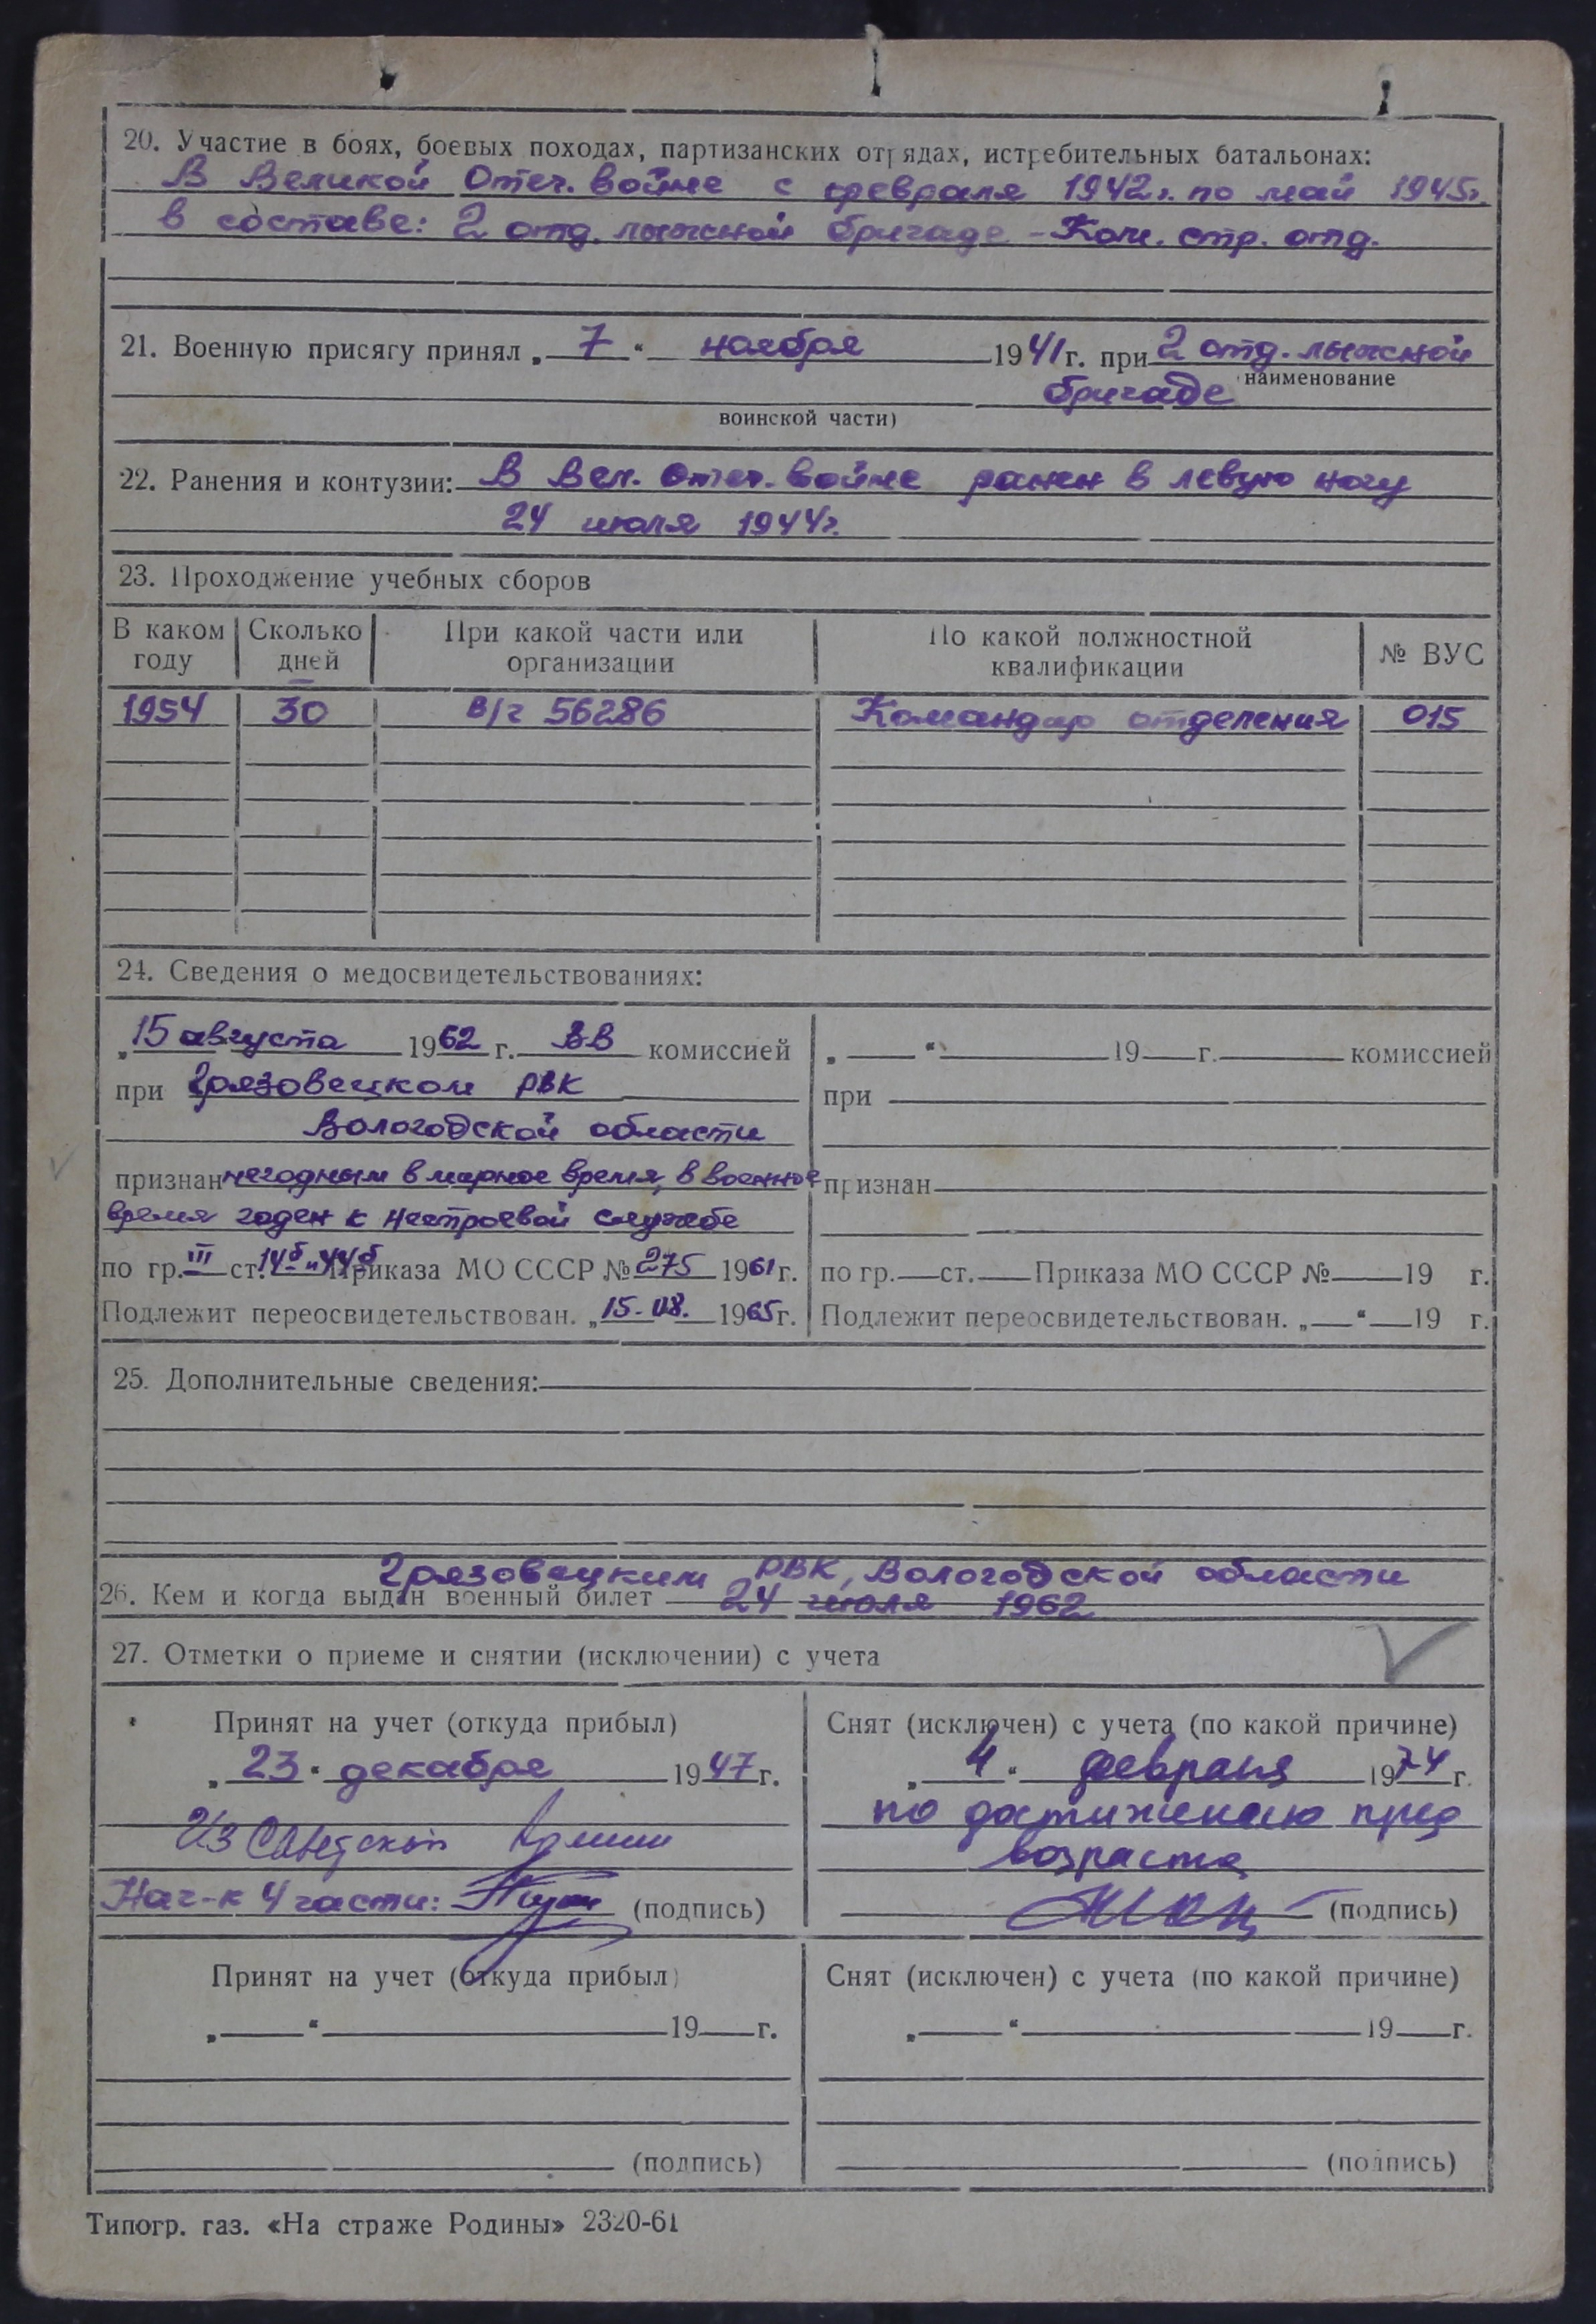 20. Участие в боях, боевых походах, партизанских отрядах, истребительных батальонах:
В Великой Отеч. войне с февраля 1942г. по май 1945г.
в составе: 2 отд. лыжной бригаде - Ком. стр. отд.
21. Военную присягу принял „7“ ноября 1941 г. при 2 отд. лыжной
наименование
бригаде
воинской части)
22. Ранения и контузии: В Вел. Отеч. войне ранен в левую ногу
24 июля 1944г.
23. Прохождение учебных сборов
В каком году Сколько дней При какой части или организации По какой должностной квалификации № ВУС
1954 30 в/ч 56286 Командир отделения 015
24. Сведения о медосвидетельствованиях:
„15 августа 1962 г. ВВ комиссией
при Грязовецком РВК
Вологодской области
признан негодным в мирное время, в военное
время годен к нестроевой службе
по гр. III ст. 14б и 44б Приказа МО СССР № 275 1961 г.
Подлежит переосвидетельствован. „15. 08. 1965 г.
„ “ 19 г. комиссией
при
признан
по гр. ст. Приказа МО СССР № 19 г.
Подлежит переосвидетельствован. „ “ 19 г.
25. Дополнительные сведения:
Грязовецким РВК, Вологодской области
26. Кем и когда выдан военный билет 24 июля 1962
27. Отметки о приеме и снятии (исключении) с учета
Принят на учет (откуда прибыл)
„23“ декабря 1947 г.
Из Советской Армии
Нач-к 4 части: (подпись)
Снят (исключен) с учета (по какой причине)
„4“ февраля 1974 г.
по достижению пред
возраста
(подпись)
Принят на учет (откуда прибыл)
„ “ 19 г.
(подпись)
Снят (исключен) с учета (по какой причине)
„ “ 19 г.
(подпись)
Типогр. газ. «На страже Родины» 2320-61